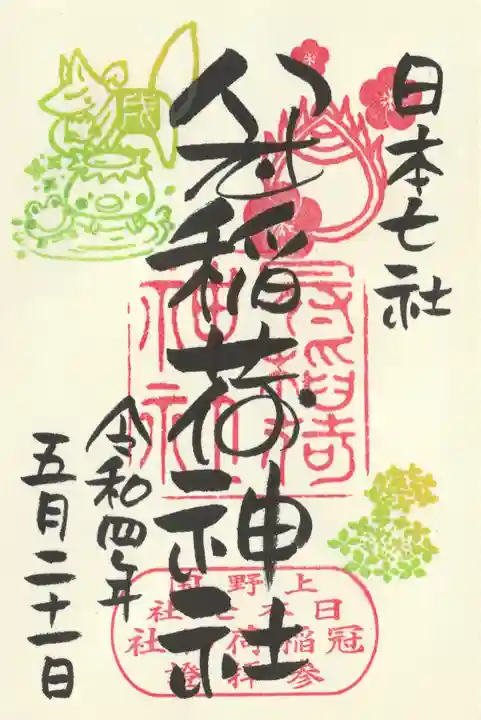 日本七社
冠稲荷神社
令和四年
五月二十一日
上野国
日本七社
冠稲荷神社
参拝證